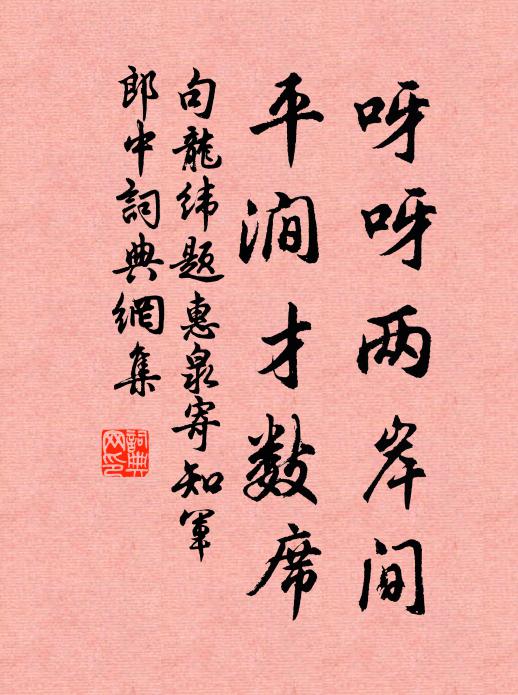 呀呀两岸间
平澗才数席
句龍纬题惠泉寄知軍
郎中詞典網集
詞典
网印